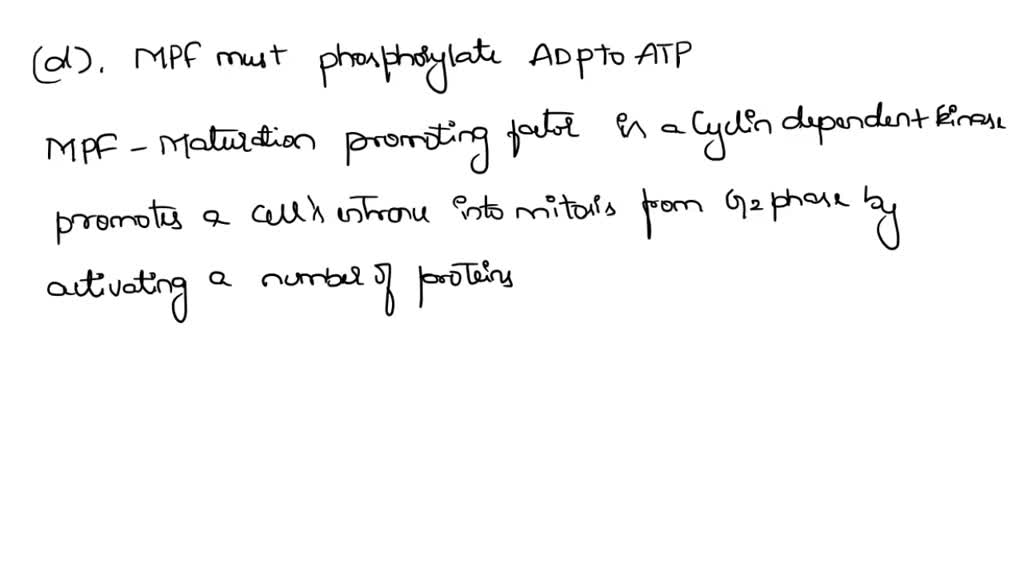 (d). MPF must phosphorylate ADP to ATP
MPF - Maturation promoting factor is a Cyclin dependent kinase
promotes a cell's entrance into mitosis from G2 phase by
activating a number of proteins